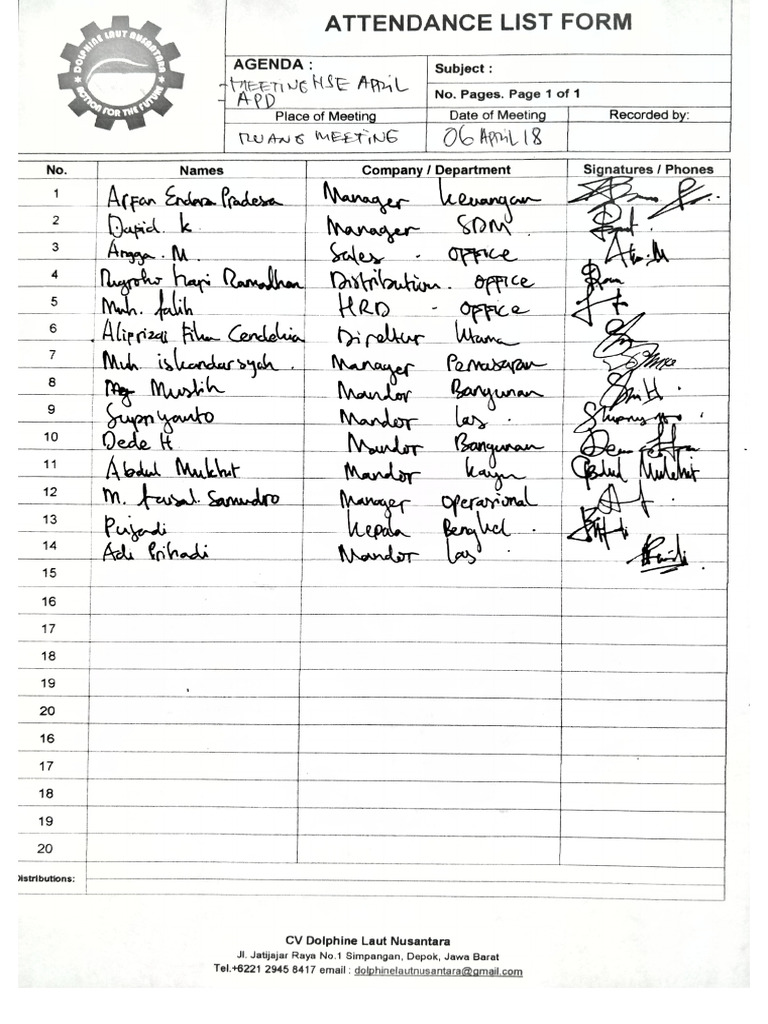 ATTENDANCE LIST FORM
DOLPHINE LAUT NUSANTARA
ACTION FOR THE FUTURE
AGENDA :
- MEETING HSE APRIL
- APD
Subject :
No. Pages. Page 1 of 1
Place of Meeting Date of Meeting Recorded by:
RUANG MEETING 06 April 18
No. Names Company / Department Signatures / Phones
1 Arfan Endara Pradesa Manager Keuangan
2 Dapid. K Manager SDM
3 Angga. M. Sales - OFFICE
4 Nugroho Hapi Ramadhan Distribution. OFFICE
5 Muh. falih HRD - OFFICE
6 Aliprizai Cendekia Direktur Utama
7 Muh. iskandarsyah. Manager Pemasaran
8 Muslih Mandor Bangunan
9 Supriyanto Mandor Las.
10 Dede H Mandor Bangunan
11 Abdul Mukhit Mandor Kayu Abdul Mukhit
12 M. faisal. Samudro Manager Operasional
13 Pujadi Kepala Bengkel.
14 Adi Prihadi Mandor Las.
15
16
17
18
19
20
16
17
18
19
20
istributions:
CV Dolphine Laut Nusantara
Jl. Jatijajar Raya No.1 Simpangan, Depok, Jawa Barat
Tel.+6221 2945 8417 email : dolphinelautnusantara@gmail.com